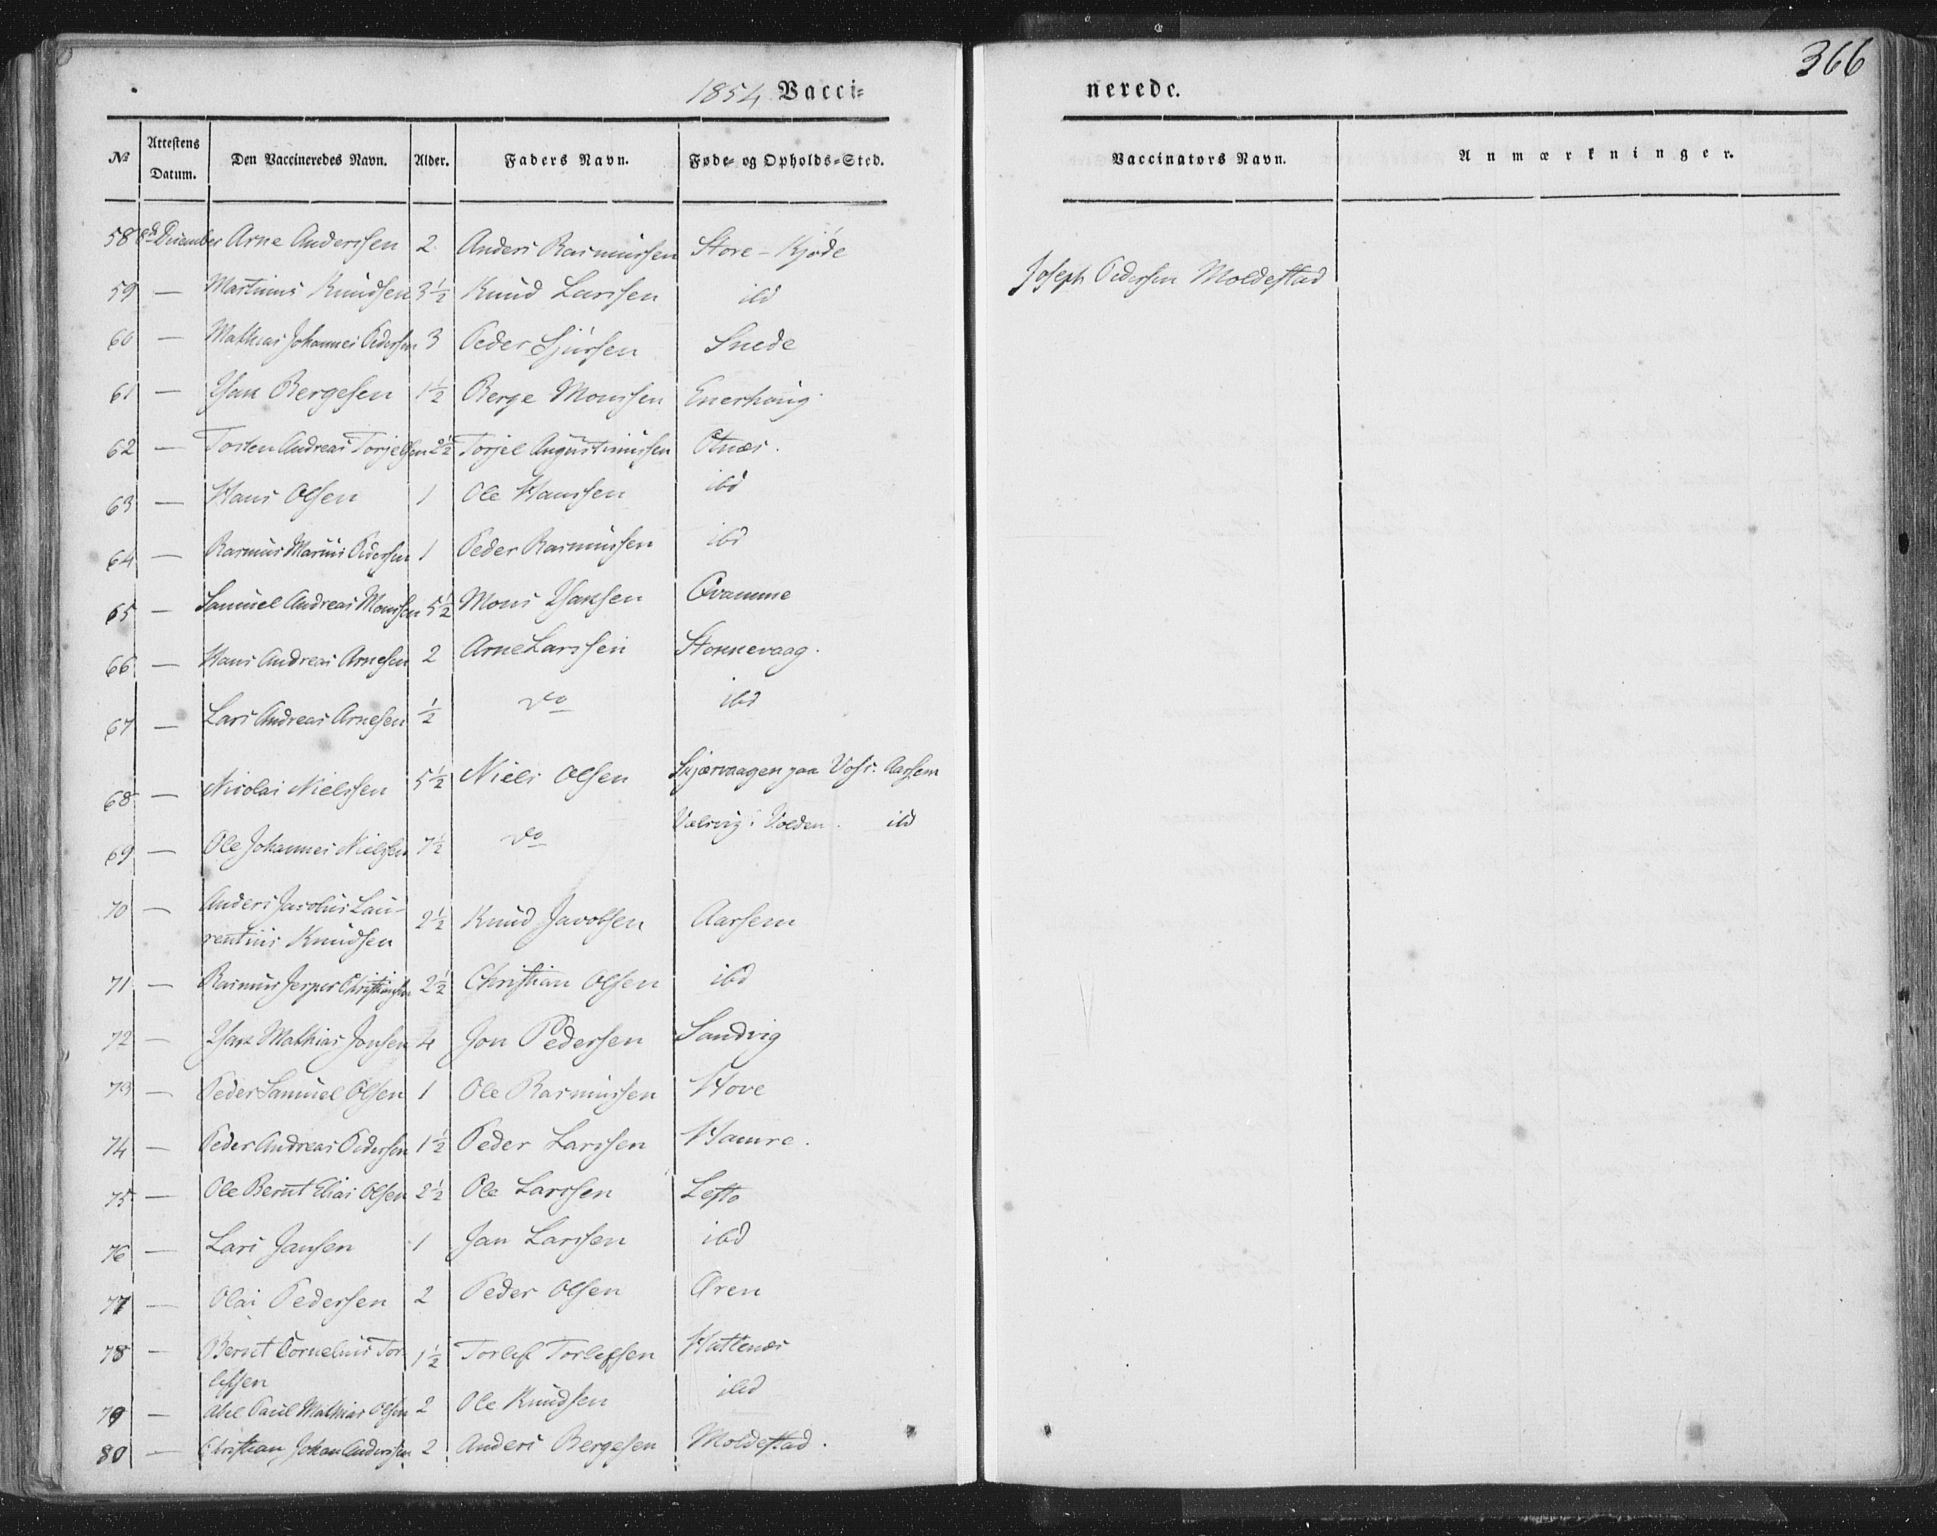 366
1854 Vacci-
nerede.
No
Attestens Datum.
Den Vaccineredes Navn.
Alder.
Faders Navn.
Føde- og Opholds-Sted.
Vaccinators Navn.
Anmærkninger.
58 8de December Arne Anderssen 2 Anders Rasmussen Store-Kjøde Joseph Pederssen Moldestad
59 — Martinus Knudsen 3½ Knud Larssen ibd
60 — Mathias Johannes Pederssen 3 Peder Sjurssen Snede
61 — Hans Bergesen 1½ Berge Monssen Enerhaug
62 — Torsten Andreas Torjelsen 2½ Torjel Augustinussen Otnæs.
63 — Hans Olsen 1 Ole Hanssen ibd
64 — Rasmus Marius Pederssen 1 Peder Rasmussen ibd
65 — Samuel Andreas Monssen 5½ Mons Hansen Qvamme
66 — Hans Andreas Arnesen 2 Arne Larssen Stonnevaag.
67 — Lars Andreas Arnesen ½ do ibd
68 — Nicolai Nielssen 5½ Niels Olsen Skjærvaagen paa Aarsem
69 — Ole Johannes Nielssen 7½ do Volden. ibd
70 — Anders Jacobus Lau-
rentius Knudsen 2½ Knud Jacobsen Aarsem
71 — Rasmus Jesper Christianssen 2½ Christian Olsen ibd
72 — Hans Mathias Jonsen 4 Jon Pedersen Sandvig
73 — Peder Samuel Olsen 1 Ole Rasmussen Hove
74 — Peder Andreas Pederssen 1½ Peder Larssen Hamre.
75 — Ole Bernt Elias Olsen 2½ Ole Larssen Lefto
76 — Lars Jansen 1 Jan Larssen ibd
77 — Olai Pedersen 2 Peder Olsen Aren
78 — Bernt Cornelius Tor-
lefsen 1½ Torlef Torlefsen Hattenæs
79 — Abel Paul Mathias Olsen 2 Ole Knudsen ibd
80 — Christian Johan Anderssen 2 Anders Bergesen Moldestad.